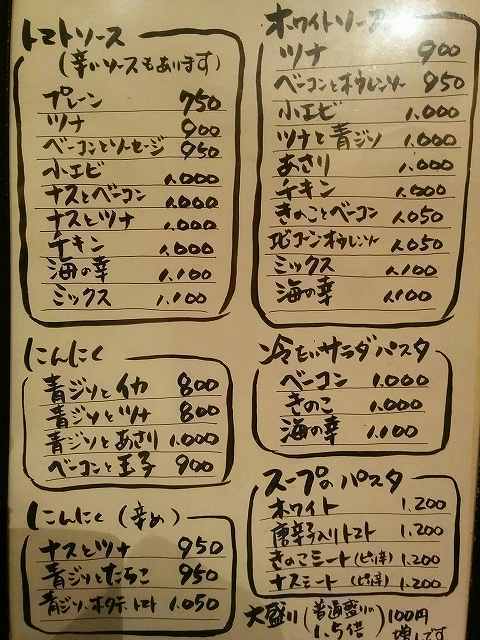 トマトソース
(辛いソースもあります)
プレーン 750
ツナ 900
ベーコンとソーセージ 950
小エビ 1.000
ナスとベーコン 1.000
ナスとツナ 1.000
チキン 1.000
海の幸 1.100
ミックス 1.100
にんにく
青ジソとイカ 800
青ジソとツナ 800
青ジソとあさり 1.000
ベーコンと玉子 900
にんにく (辛め)
ナスとツナ 950
青ジソとたらこ 950
青ジソ・ホタテ・トマト 1.050
ホワイトソース
ツナ 900
ベーコンとホウレンソー 950
小エビ 1.000
ツナと青ジソ 1.000
あさり 1.000
チキン 1.000
きのことベーコン 1.050
コーンホウレンソー 1.050
ミックス 1.100
海の幸 1.100
冷たいサラダパスタ
ベーコン 1.000
きのこ 1.000
海の幸 1.100
スープのパスタ
ホワイト 1.200
唐辛子入りトマト 1.200
きのこミート (ピリ辛) 1.200
ナスミート (ピリ辛) 1.200
大盛り (普通盛りの 1.5倍) 100円
増しです